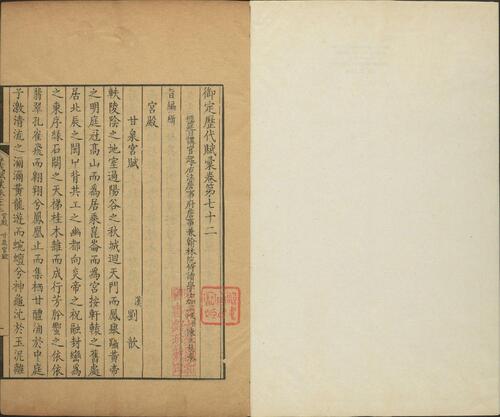 御定歷代賦彙卷第七十二
經筵講官起居注詹事府詹事兼翰林院侍讀學士加三級臣陳元龍奉
旨編輯
宮殿
甘泉宮賦
漢 劉歆
軼陵陰之地室過陽谷之秋城迴天門而鳳舉躡黃帝
之明庭冠高山而為居乘崑崙而為宮按軒轅之舊處
居北辰之閎中背共工之幽都向炎帝之祝融封巒為
之東序緣石闕之天梯桂木雜而成行芳肸蠁之依依
翡翠孔雀飛而翱翔兮鳳凰止而集栖甘醴涌於中庭
兮激清流之瀰瀰黃龍遊而蜿蟺兮神龜沈於玉泥離
宮殿 甘泉宮賦